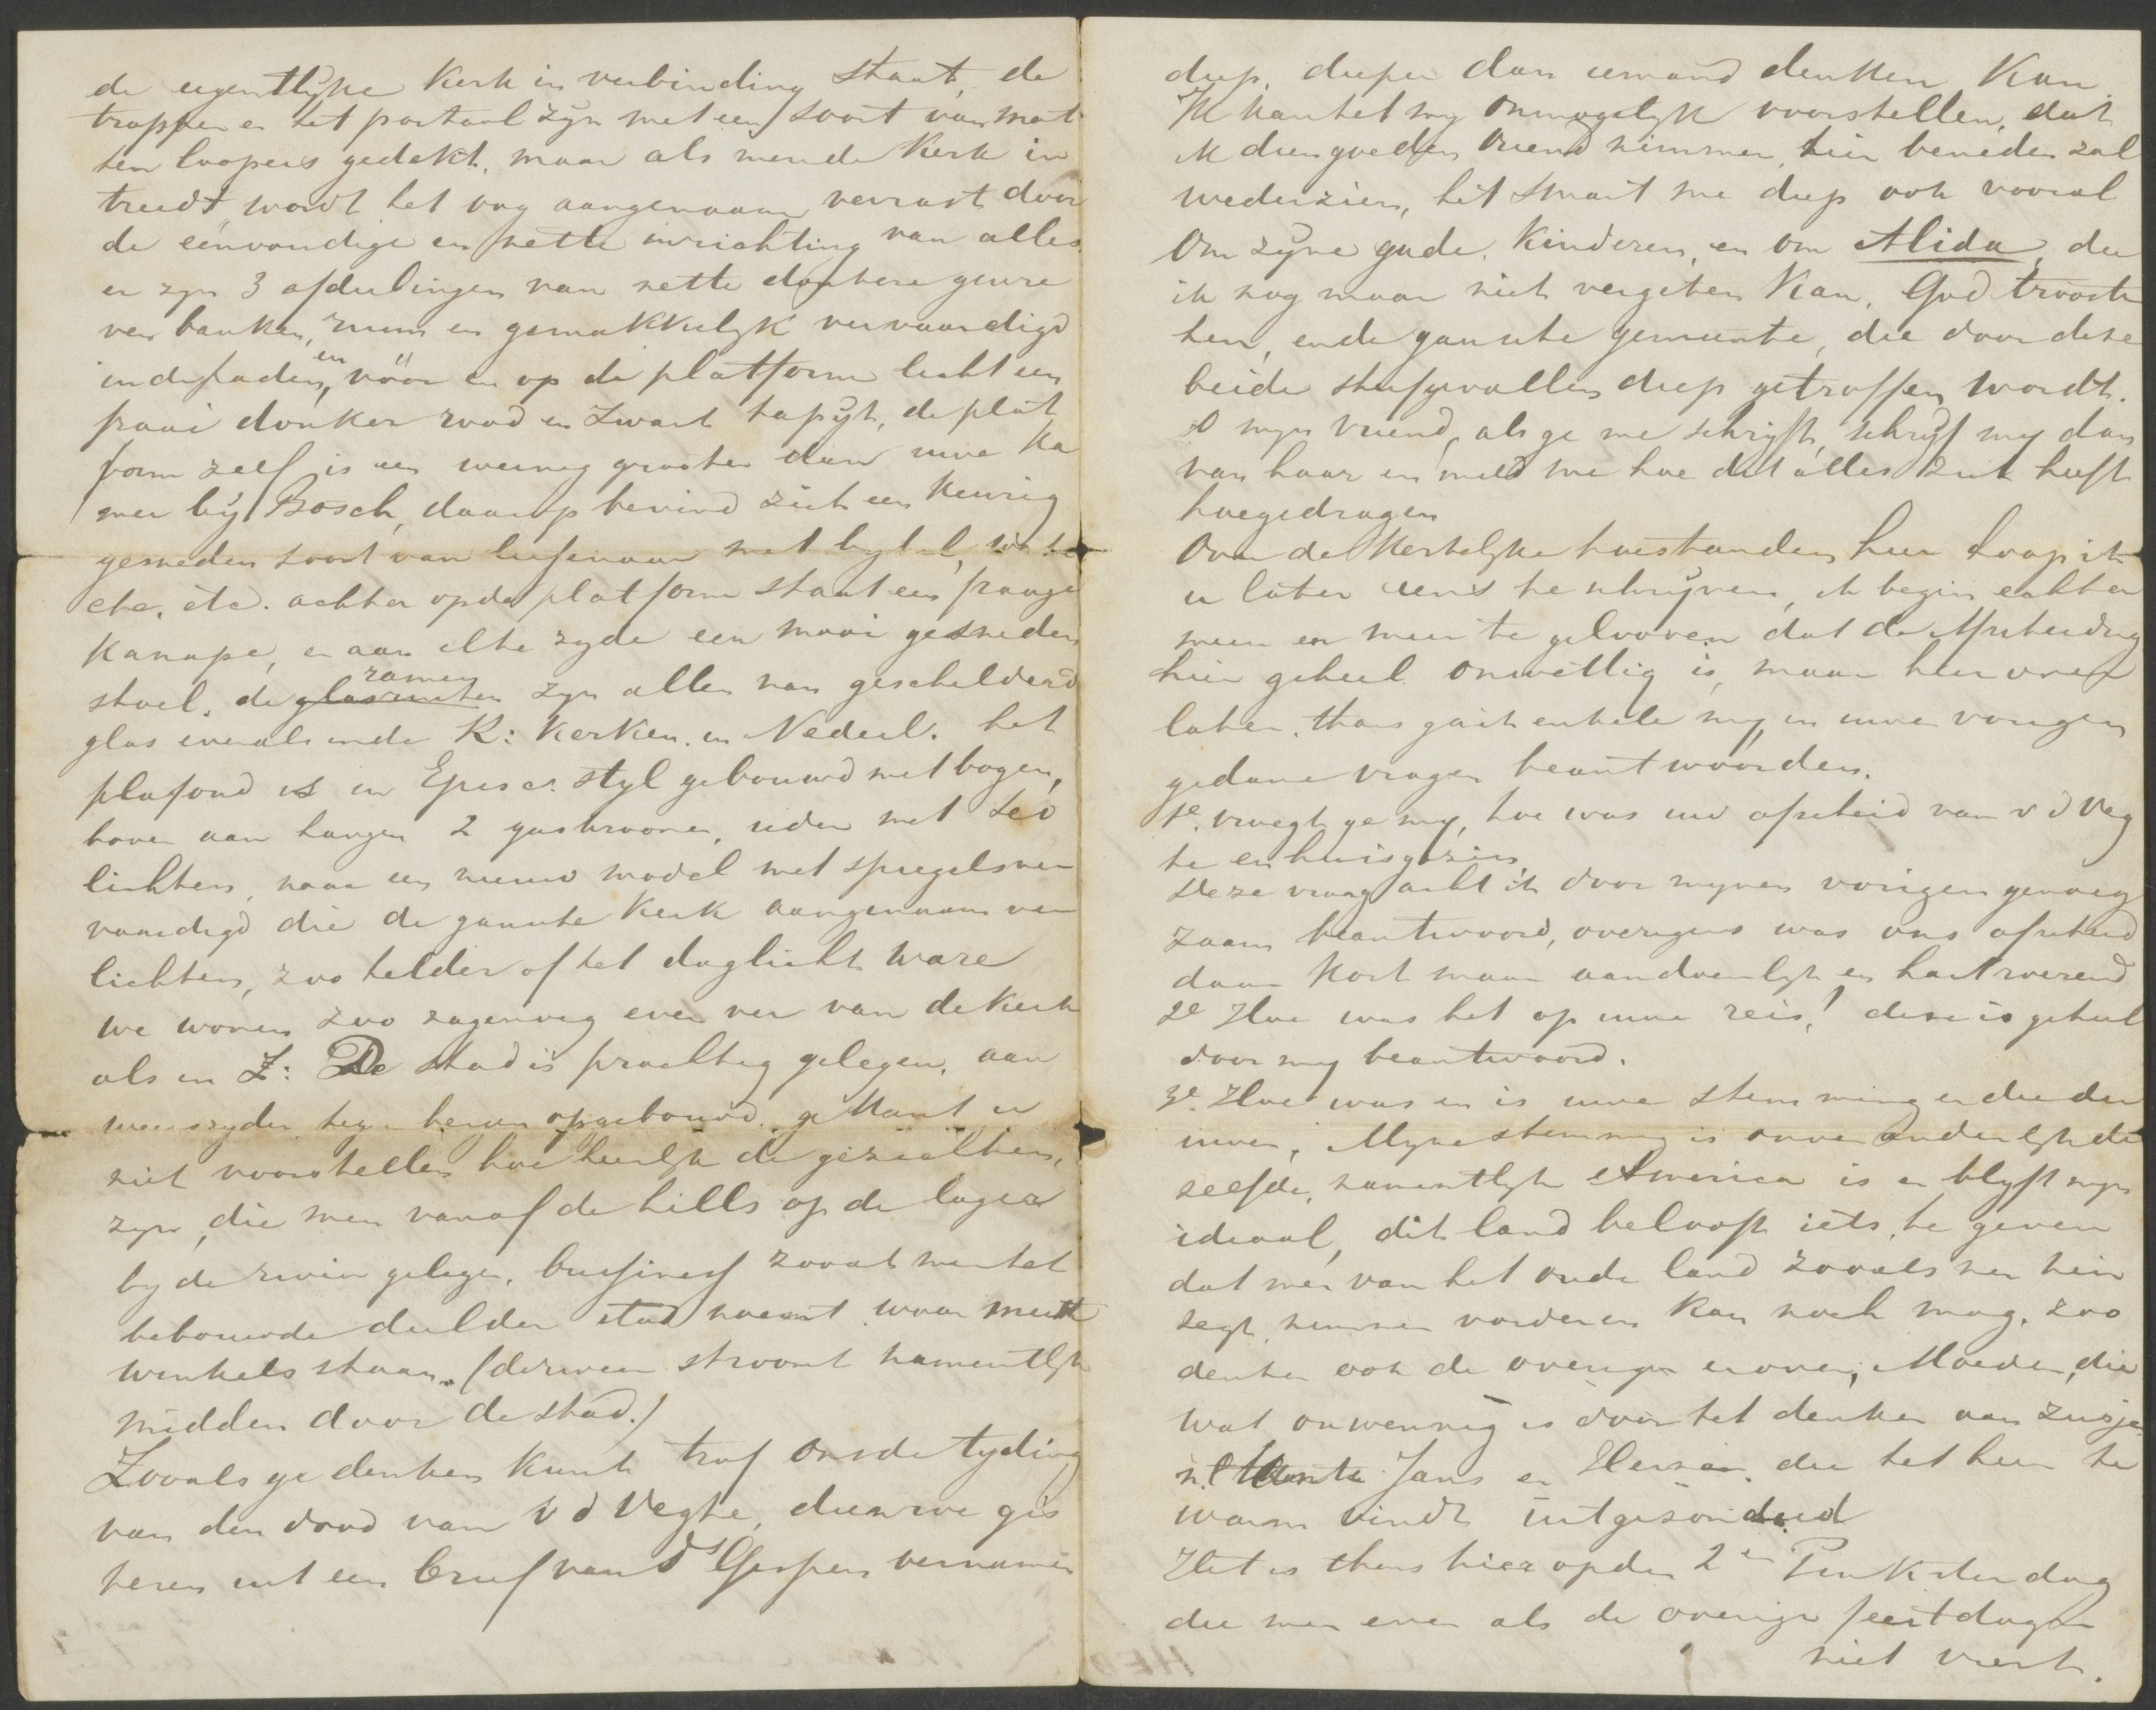 de eigentlijke Kerk in verbinding staat, de
trappen en het portaal zyn met een soort van mat
ten loopers gedekt, maar als men de Kerk in
treedt, wordt het oog aangenaam verrast door
de eenvoudige en nette inrichting van alles
er zyn 3 afdeelingen van nette donkere geverw
ven banken, ruim en gemakkelyk vervaardigd
in de paden, en vóór en op de platform licht een
fraai donker rood en zwart tapyt, de plat
form zelf is een weinig grooter dan uwe Ka
mer by Bosch, daarop bevind zich een keurig
gesneden soort van lessenaar met bybel,
etc. etc. achter op de platform staat een franje
Kanapé, en aan elke zyde een mooi gesneden
stoel. de ramen zyn allen van geschilderd
glas evenals in de R: Kerken in Nederl. het
plafond is in Episc. styl gebouwd met bogen,
boven aan hangen 2 gaskroonen, ieder met
lichten, naar een nieuw model met spiegels ver
vaardigd die de gansche Kerk aangenaam ver
lichten, zoo helder of het daglicht ware
We wonen zoo zagenoeg even ver van de Kerk
als in Z: De stad is prachtig gelegen, aan
weerszyden tegen bergen opgebouwd, ge kunt u
niet voorstellen hoe heerlyk de gezichten,
zyn, die men vanaf de hills op de lager
by de rivier gelegen, bussiness zooals men het
bebouwde deel der stad noemt waar meest
winkels staan. (de rivier stroomt namentlyk
midden door de stad.)
Zooals ge denken kunt trof ons de tyding
van den dood van v d Vegte, die we gis
teren uit een brief van Ds Gespen vernamen
diep, dieper dan iemand denken Kan.
Ik kan het my onmogelyk voorstellen, dat
ik dien goeden vriend nimmer, hier beneden zal
wederzien, het smart me diep ook vooral
Om zyne goede Kinderen, en om Alida, die
ik nog maar niet vergeten Kan. God trooste
hen, en de gansche gemeente, die door deze
beide sterfgevallen diep getroffen wordt.
O myn vriend, als ge me schryft, schryf my dan
van haar en meld me hoe dit alles zich heeft
toegedragen
Over de Kerkelyke toestanden hier hoop ik
u later eens te schryven, ik begin echter
meer en meer te gelooven dat de Afscheiding
hier geheel onwettig is, maar hierover
later. thans ga ik enkele my, in uwen vorigen
gedane vragen beantwoorden.
1e. vraagt ge my, hoe was uw afscheid van v d Veg
te en huisgezin
Deze vraag acht ik door mynen vorigen genoeg
zaam beantwoord, overigens was ons afscheid
daar kort maar aandoenlyk en hartroerend
2e Hoe was het op uwe reis! deze is geheel
door my beantwoord.
3e. Hoe was en is uwe stemming en die der
uwen, Myne stemming is onveranderlyk de
zelfde, namentlyk America is en blyft myn
ideaal, dit land belooft iets te geven
dat men van het oude land zooals men hier
zegt, nimmer vorderen kan noch mag. zoo
denken ook de overigen erover, Moeder, die
wat onwennig is door het denken aan zusje
n.l. Tante Jans en Herman. die het hier te
warm vindt uitgezonderd
Het is thans hier op den 2en Pinksterdag
die men even als de overige feestdagen
niet viert.